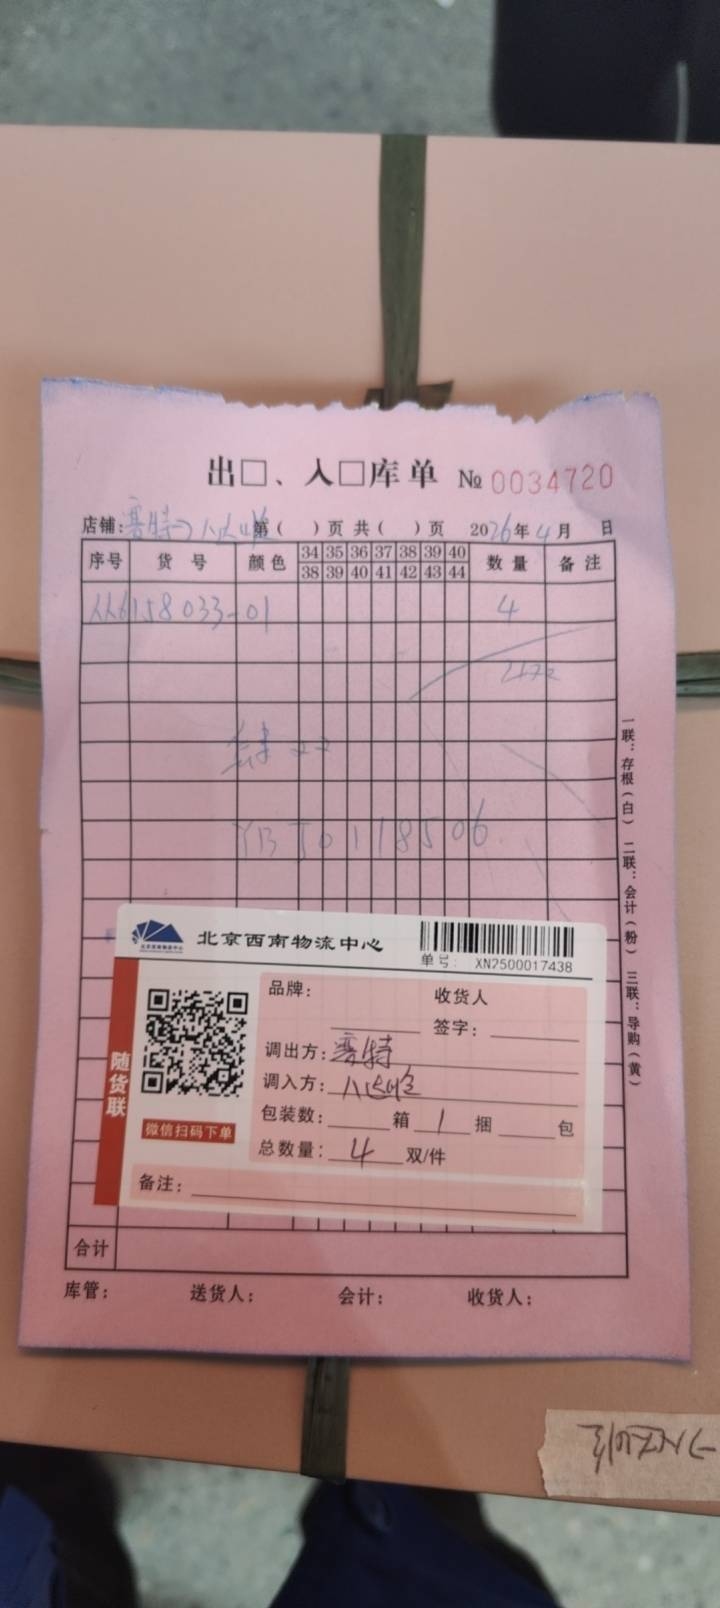 出□、入□库单 № 0034720
店铺: 赛特→八达岭 第( )页 共( )页 2026年4月 日
序号 货号 颜色 34 35 36 37 38 39 40 数量 备注
38 39 40 41 42 43 44
6158033-01 4
YB50118506
一联:存根(白) 二联:会计(粉) 三联:导购(黄)
北京西南物流中心
单号: XN2500017438
随货联
微信扫码下单
品牌: 收货人
签字:
调出方: 赛特
调入方: 八达岭
包装数: 箱 1 捆 包
总数量: 4 双/件
备注:
合计
库管: 送货人: 会计: 收货人: